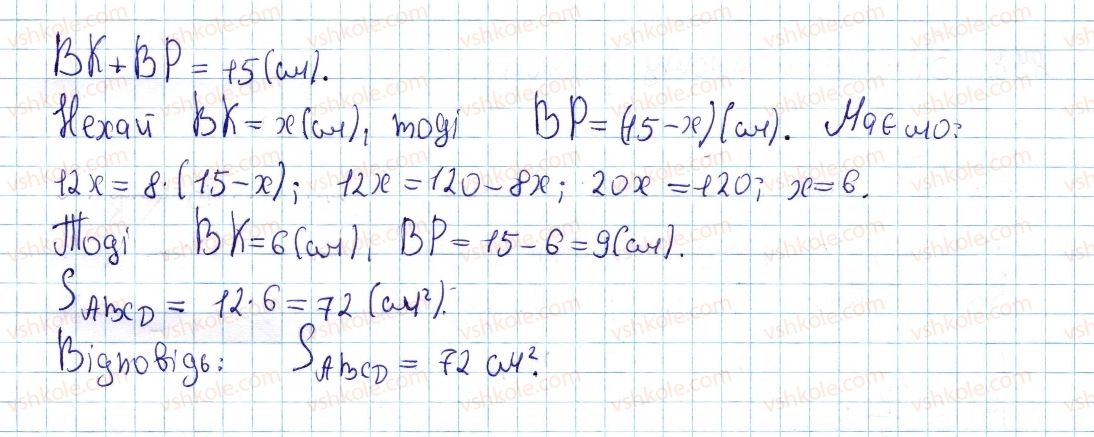 BK + BP = 15 (см).
Нехай BK = x (см), тоді BP = (15 - x) (см). Маємо:
12x = 8 · (15 - x); 12x = 120 - 8x; 20x = 120; x = 6.
Тоді BK = 6 (см), BP = 15 - 6 = 9 (см).
S_ABCD = 12 · 6 = 72 (см²).
Відповідь: S_ABCD = 72 см².